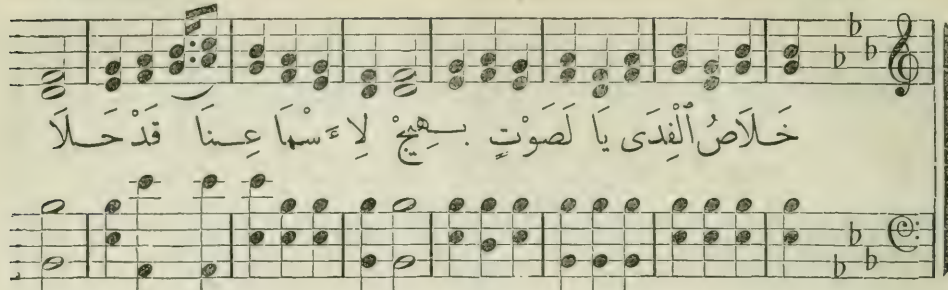 خَلَاصُ ٱلْفِدَى يَا لَصَوْتٍ بَهِيجْ لِاءَسْمَا عِنا قَدْ حَلَا